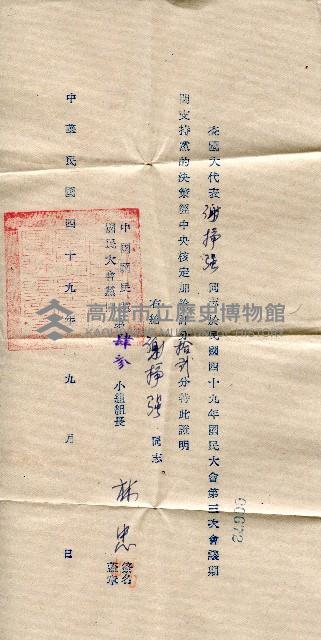 查國大代表謝掙强同志於民國四十九年國民大會第三次會議期
間支持黨的決策經中央核定加給積分拾貳分特此證明
右給
謝掙强同志
中國國民黨
國民大會黨部第肆參小組組長
林忠
簽名
蓋章
中華民國四十九年 九月 日
00672
高雄市立歷史博物館